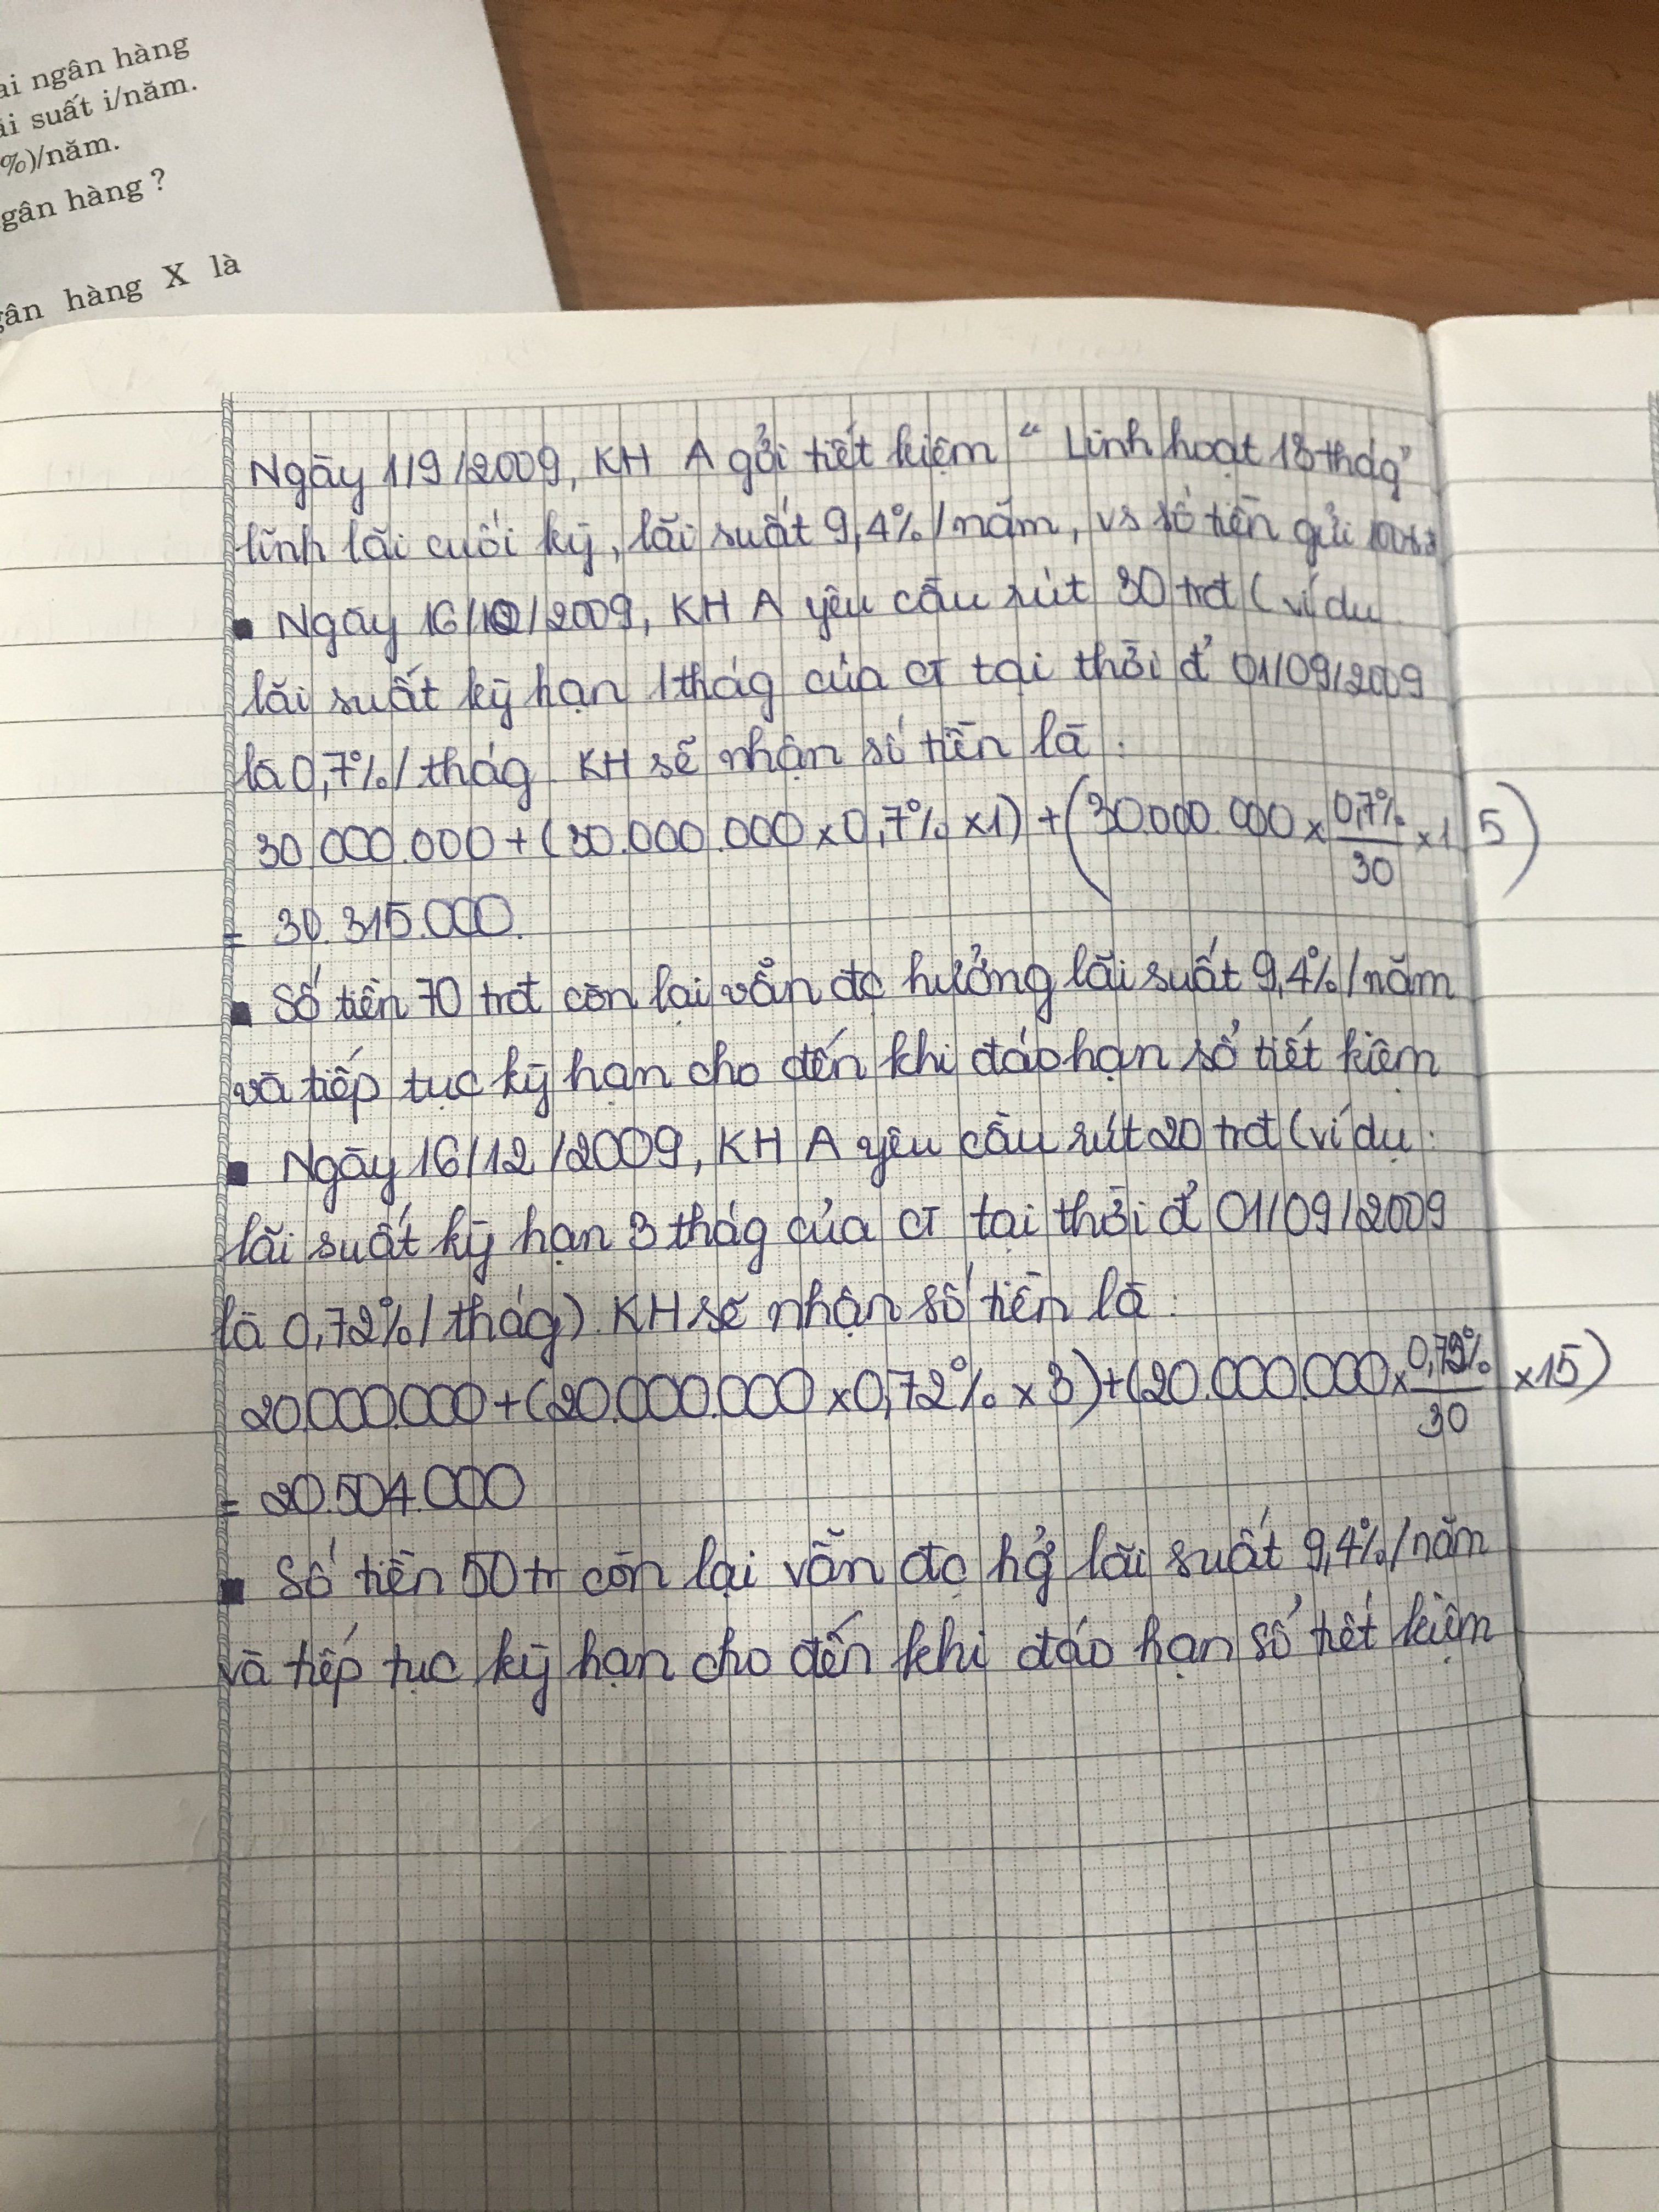 ai ngân hàng
ãi suất i/năm.
%)/năm.
gân hàng ?
gân hàng X là
Ngày 1/9/2009, KH A gửi tiết kiệm “Linh hoạt 13 thág”
lĩnh lãi cuối kỳ, lãi suất 9,4%/năm, vs số tiền gửi
▪ Ngày 16/10/2009, KH A yêu cầu rút 30 trđ (ví dụ
lãi suất kỳ hạn 1 thág của CT tại thời đ' 01/09/2009
là 0,7%/thág KH sẽ nhận số tiền là :
30.000.000 + (30.000.000 x 0,7% x 1) + (30.000.000 x 0,7%/30 x 15)
= 30.315.000.
▪ Số tiền 70 trđ còn lại vẫn đc hưởng lãi suất 9,4%/năm
và tiếp tục kỳ hạn cho đến khi đáo hạn sổ tiết kiệm
▪ Ngày 16/12/2009, KH A yêu cầu rút 20 trđ (ví dụ :
lãi suất kỳ hạn 3 thág của CT tại thời đ' 01/09/2009
là 0,72%/thág). KH sẽ nhận số tiền là :
20.000.000 + (20.000.000 x 0,72% x 3) + (20.000.000 x 0,72%/30 x 15)
= 20.504.000
▪ Số tiền 50 tr còn lại vẫn đc hg̉ lãi suất 9,4%/năm
và tiếp tục kỳ hạn cho đến khi đáo hạn sổ tiết kiệm